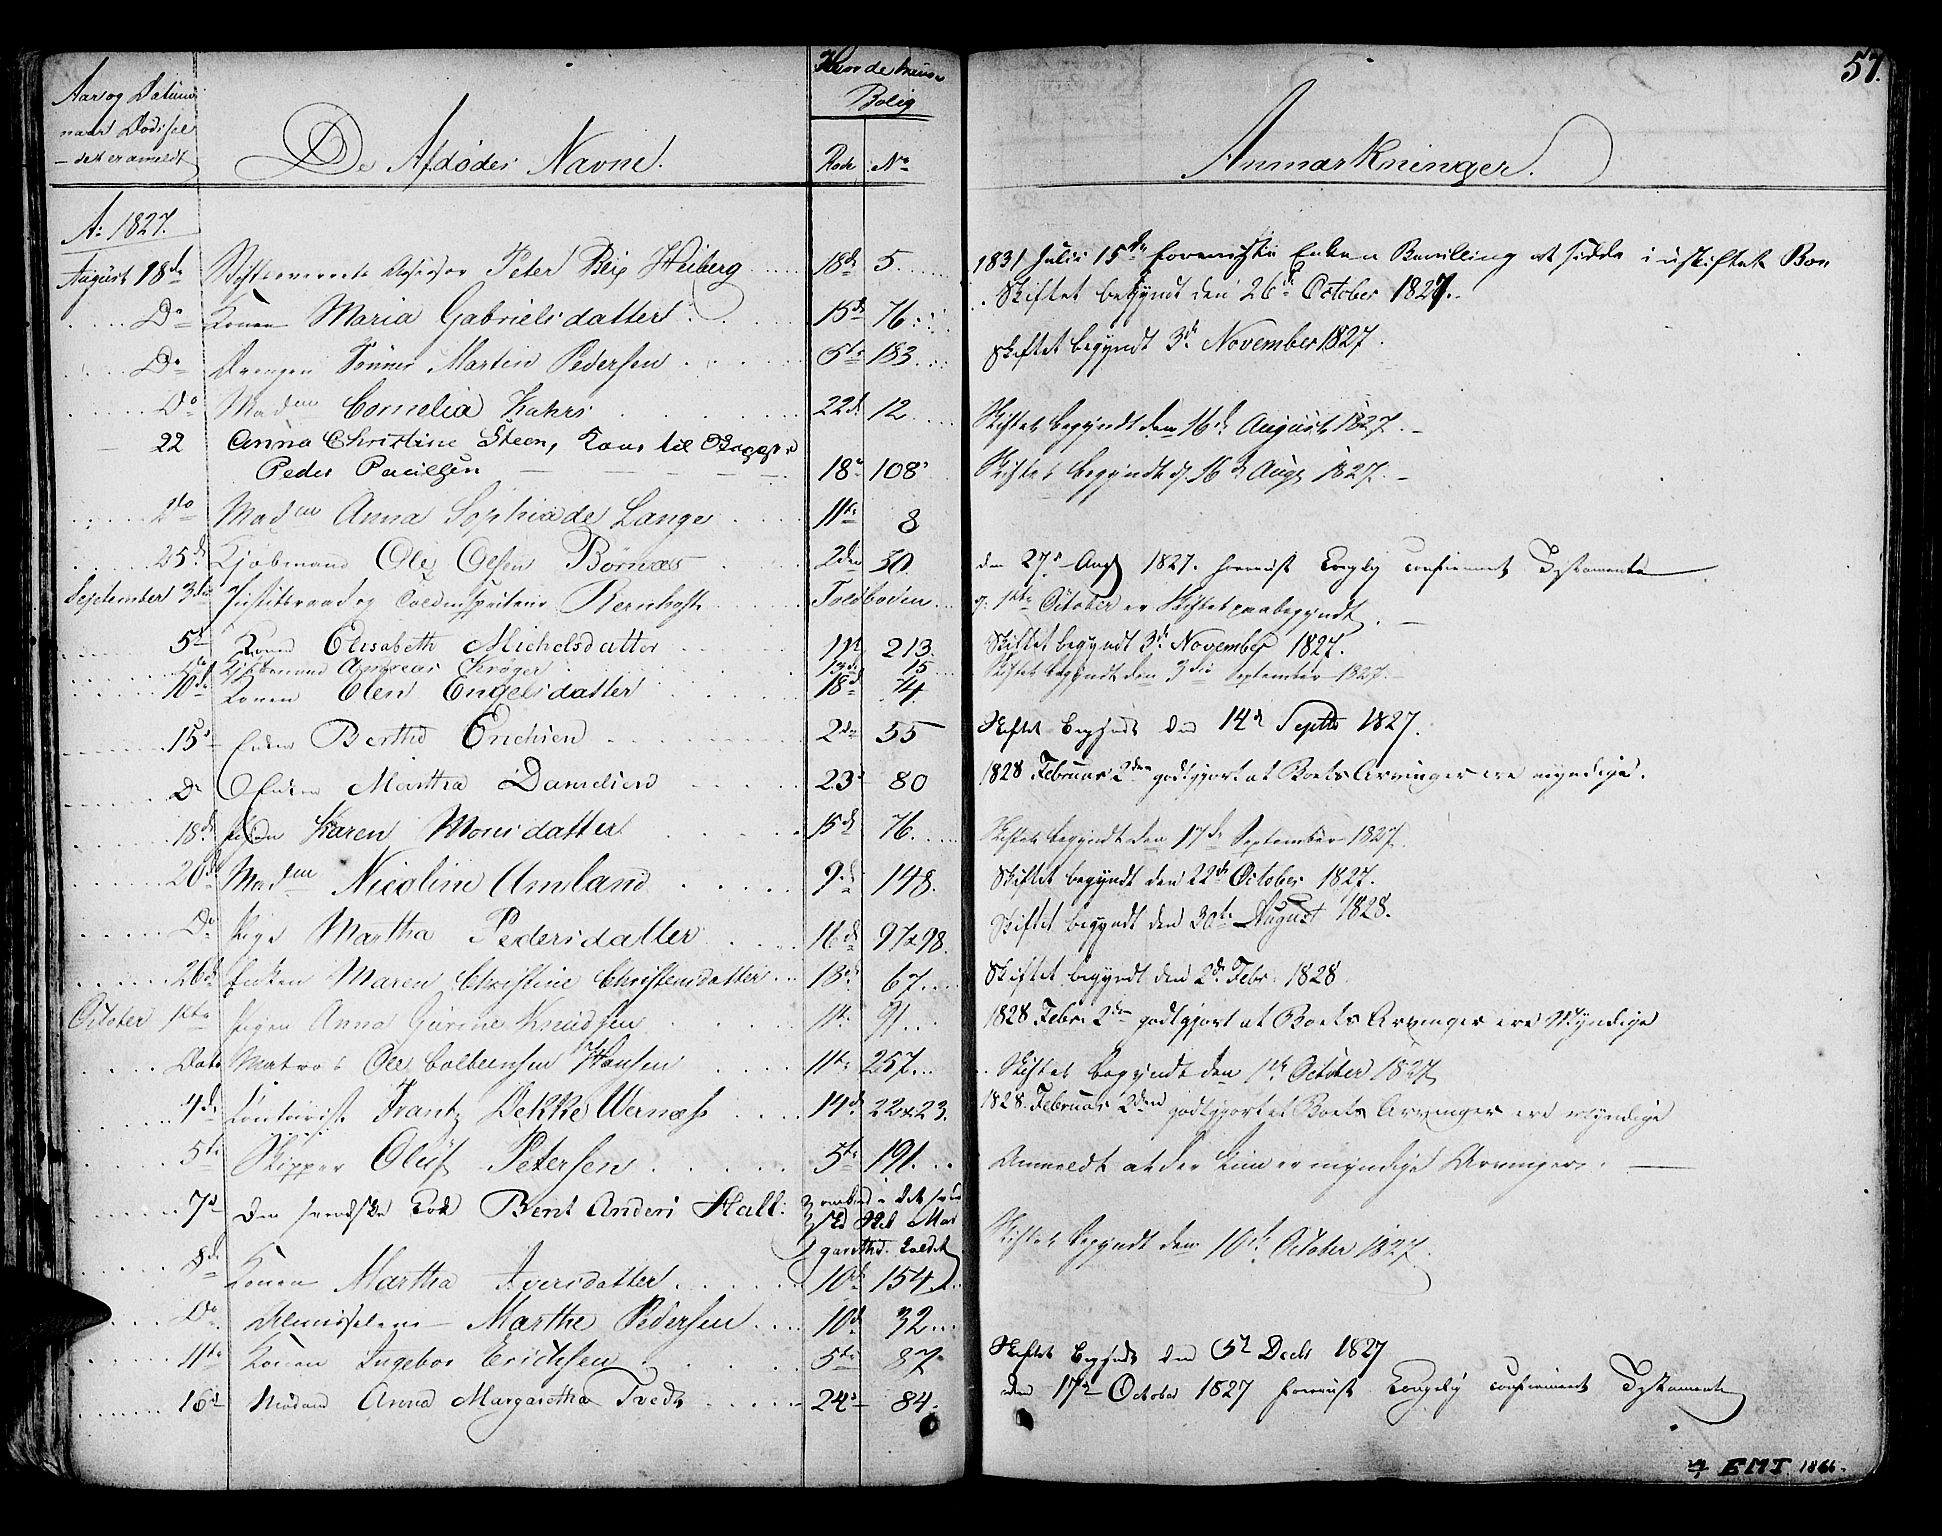 57.
Aar og Datum naar Dødsfaldet er anmeldt
De Afdødes Navne.
Hvor de havde Bolig
Rode No
Anmærkninger.
Ao 1827.
August 18de Peter Heiberg 18de 5. 1831 Julii 15de foreviiste Enken Bevilling at sidde i uskiftet Boe
Do Konen Maria Gabrielsdatter 15de 76. Skiftet begyndt den 26de October 1827.
Do Drengen Tønnes Martin Pedersen 6te 183 Skiftet begyndt 3de November 1827.
Do Madm Cornelia Kahrs 22de 12 Skiftet begyndt den 16de August 1827.
22 Anna Christine Steen, Kone til
Peder Paulsen 18de 108 Skiftet begyndt d 16de Aug 1827.
Do Madm Anna Sophia de Lange 11te 8
25de Kjøbmand Ole Olsen Børnæs 2den 30. den 27de Aug 1827. foreviist Kongelig confirmeret Testamente
September 3die Justitsraad og Toldinspecteur Bernhoft Toldboden d: 1ste October er Skiftet paabegyndt.
5te Konen Elisabeth Michelsdatter 11te 213. Skiftet begyndt 3de November 1827.
Do Kjøbmand Andreas Krøger 13de 15 Skiftet begyndt den 3die September 1827.
10de Konen Elen Engelsdatter 18de 74
15de Enken Berthe Erichsen 2den 55 Skiftet begyndt den 14de Septbr 1827.
Do Enken Martha Danielsen 23de 80 1828 Februar 2den godtgjort at Boets Arvinger ere myndige.
18de Karen Monsdatter 15de 76. Skiftet begyndt den 17de September 1827.
20de Madm Nicoline Amland 9de 148. Skiftet begyndt den 22de October 1827.
Do Pige Martha Pedersdatter 16de 97 & 98. Skiftet begyndt den 30te August 1828.
26de Enken Maren Christine Christensdatter 18de 67. Skiftet begyndt den 2de Febr. 1828
October 1ste Pigen Anna Gurine Knudsen 1ste 91. 1828 Febr. 2den godtgjort at Boets Arvinger ere Myndige
Dato Matros Ole Hansen 11te 257. Skiftet begyndt den 1ste October 1827
4de Contorist Frantz Dekke Wernæss 14de 22 & 23. 1828 Februar 2den godtgjort at Boets Arvinger ere myndige
5te Skipper Oluf Petersen 5te 191. Anmeldt at der kun er myndige Arvinger.
7de Den svenske Kok Bent Anders Hall: ombord i det
Margaretha kaldet Skiftet begyndt den 10de October 1827.
8de Konen Martha Iversdatter 10de 154
Do Almisselem Marthe Pedersen 10de 32
11te Konen Ingebor Erichsen 5te 87 Skiftet begyndt den 5te Decbr 1827
16de Madam Anna Margaretha Tvedt 24de 84. den 17de October 1827 foreviist Kongelig confirmeret Testamente
EMI 1866.